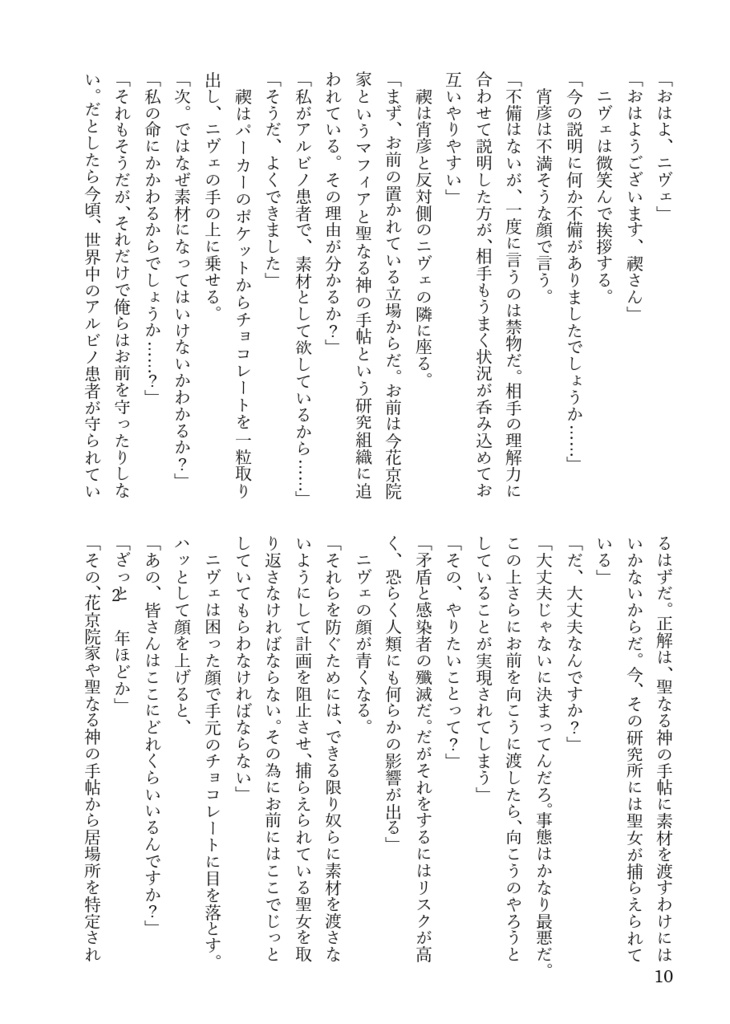 「おはよ、ニヴェ」
「おはようございます、禊さん」
　ニヴェは微笑んで挨拶する。
「今の説明に何か不備がありましたでしょうか……」
　宵彦は不満そうな顔で言う。
「不備はないが、一度に言うのは禁物だ。相手の理解力に
合わせて説明した方が、相手もうまく状況が呑み込めてお
互いやりやすい」
　禊は宵彦と反対側のニヴェの隣に座る。
「まず、お前の置かれている立場からだ。お前は今花京院
家というマフィアと聖なる神の手帖という研究組織に追
われている。その理由が分かるか？」
「私がアルビノ患者で、素材として欲しているから……」
「そうだ、よくできました」
　禊はパーカーのポケットからチョコレートを一粒取り
出し、ニヴェの手の上に乗せる。
「次。ではなぜ素材になってはいけないかわかるか？」
「私の命にかかわるからでしょうか……？」
「それもそうだが、それだけで俺らはお前を守ったりしな
い。だとしたら今頃、世界中のアルビノ患者が守られてい
るはずだ。正解は、聖なる神の手帖に素材を渡すわけには
いかないからだ。今、その研究所には聖女が捕らえられて
いる」
「だ、大丈夫なんですか？」
「大丈夫じゃないに決まってんだろ。事態はかなり最悪だ。
この上さらにお前を向こうに渡したら、向こうのやろうと
していることが実現されてしまう」
「その、やりたいことって？」
「矛盾と感染者の殲滅だ。だがそれをするにはリスクが高
く、恐らく人類にも何らかの影響が出る」
　ニヴェの顔が青くなる。
「それらを防ぐためには、できる限り奴らに素材を渡さな
いようにして計画を阻止させ、捕らえられている聖女を取
り返さなければならない。その為にお前にはここでじっと
していてもらわなければならない」
　ニヴェは困った顔で手元のチョコレートに目を落とす。
ハッとして顔を上げると、
「あの、皆さんはここにどれくらいいるんですか？」
「ざっと2年ほどか」
「その、花京院家や聖なる神の手帖から居場所を特定され
10